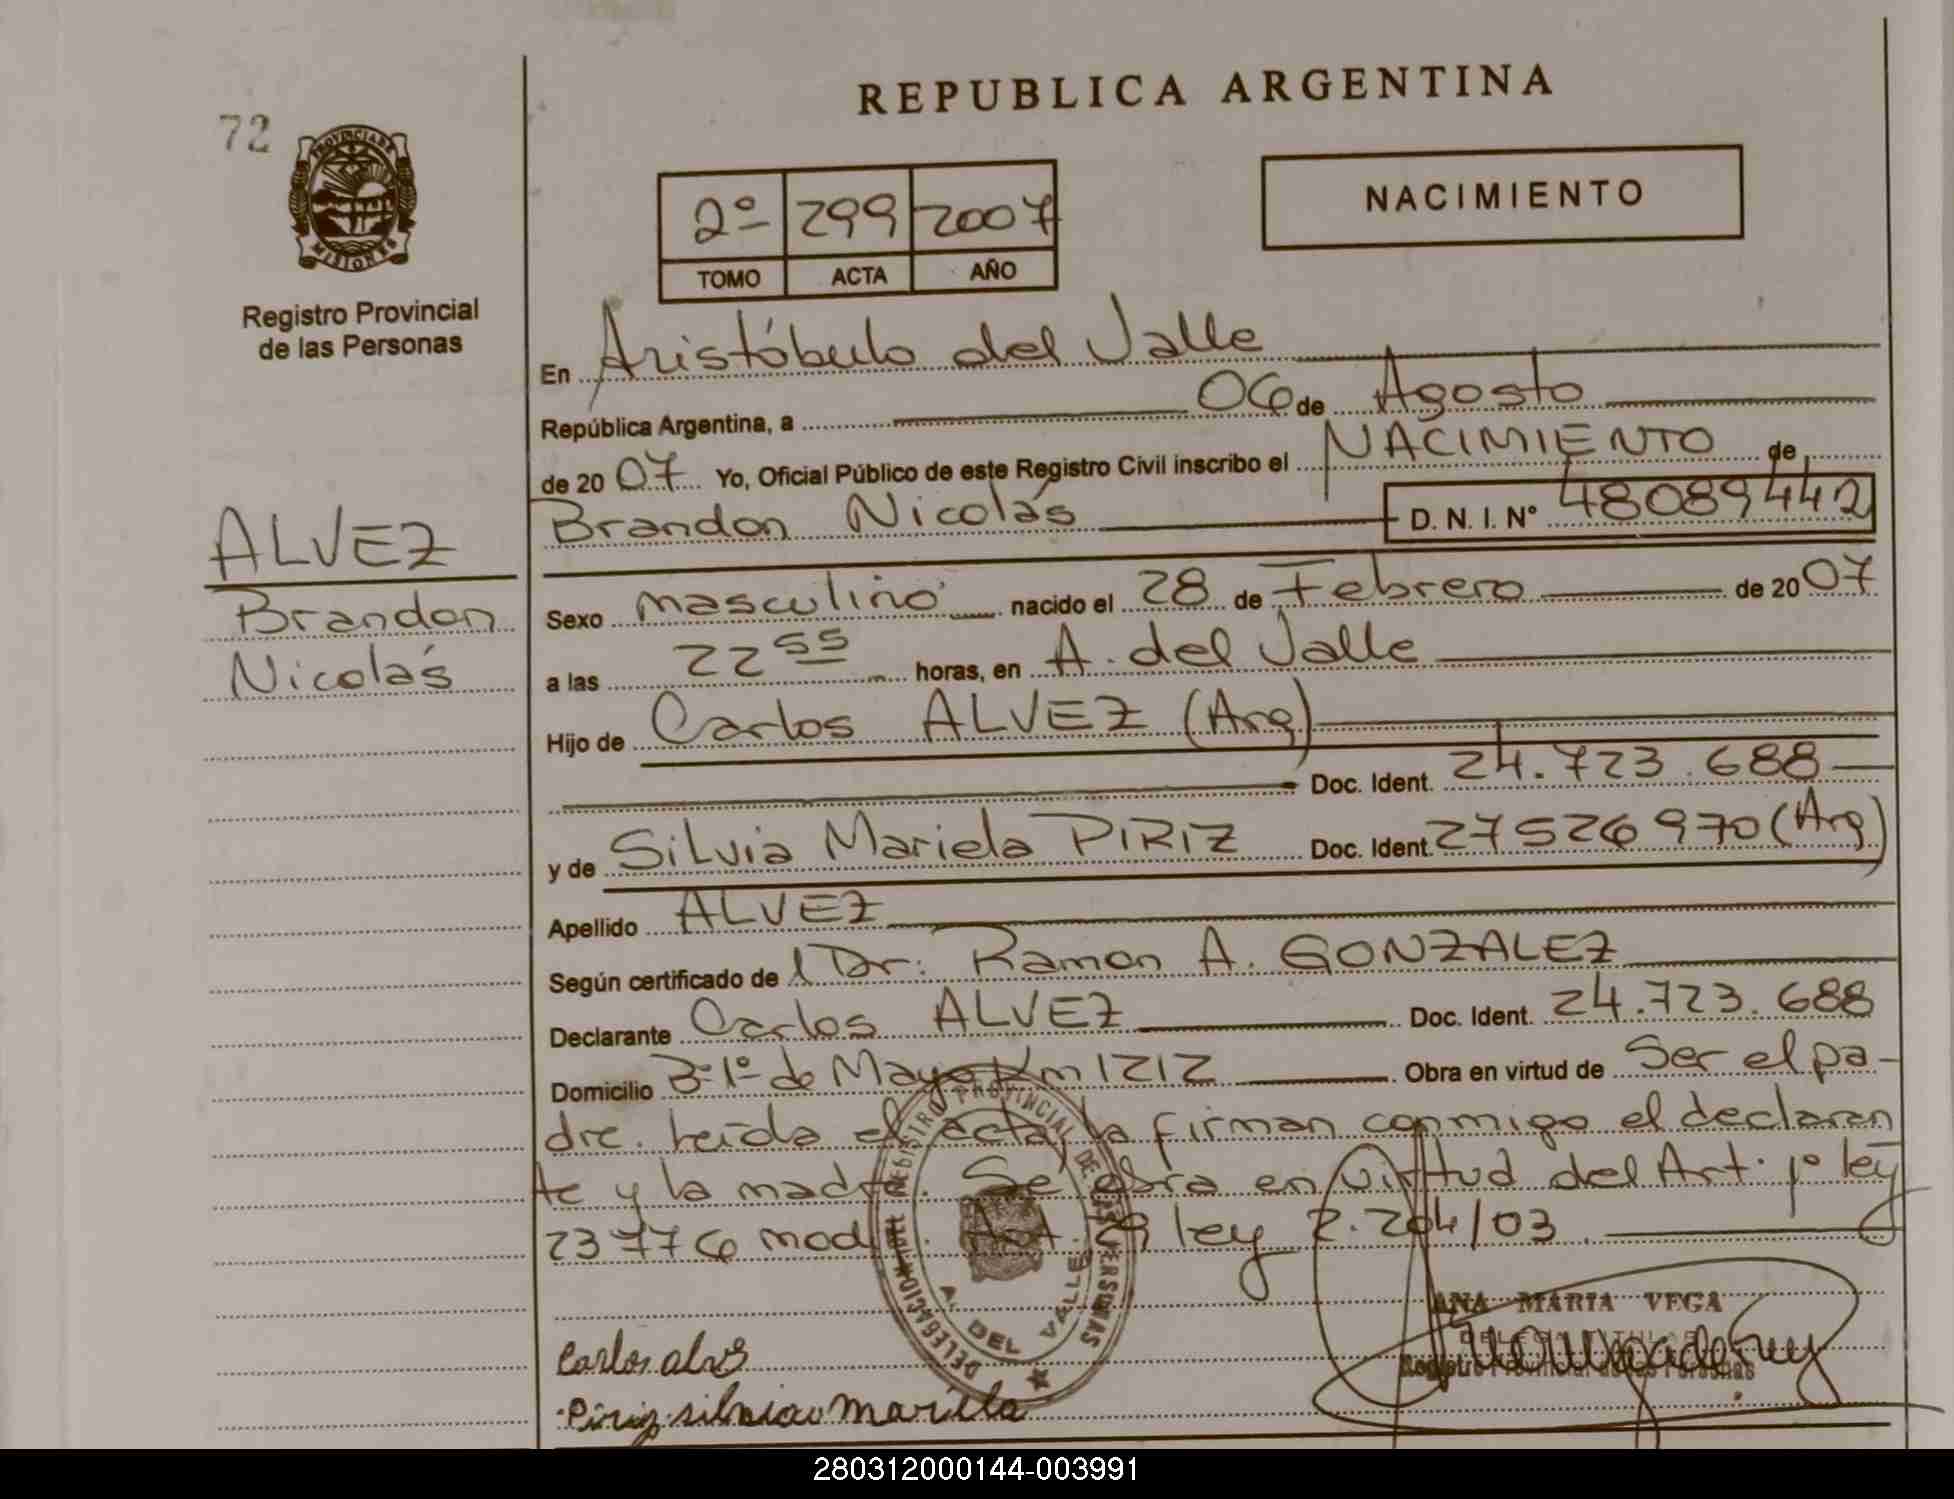 72
PROVINCIA DE
MISIONES
Registro Provincial
de las Personas
REPUBLICA ARGENTINA
2º 299 2007
TOMO ACTA AÑO
NACIMIENTO
En Aristóbulo del Valle
República Argentina, a 06 de Agosto
de 2007 Yo, Oficial Público de este Registro Civil inscribo el NACIMIENTO de
Brandon Nicolás D. N. I. Nº 48089442
ALVEZ
Brandon
Nicolás
Sexo masculino nacido el 28 de Febrero de 2007
a las 22 55 horas, en A. del Valle
Hijo de Carlos ALVEZ (Arg)
Doc. Ident. 24.723.688
y de Silvia Mariela PIRIZ Doc. Ident. 27526970 (Arg)
Apellido ALVEZ
Según certificado del Dr. Ramon A. GONZALEZ
Declarante Carlos ALVEZ Doc. Ident. 24.723.688
Domicilio Bº 1º de Mayo Km 1212 Obra en virtud de Ser el pa-
dre. Leída el acta, la firman conmigo el declaran
te y la madre. Se obra en virtud del Art. 1º ley
23776 modif. Art. 29 ley 2.204/03.
DELEGACION DEL REGISTRO PROVINCIAL DE LAS PERSONAS
A. DEL VALLE
ANA MARIA VEGA
DELEGADA TITULAR
Registro Provincial de las Personas
Carlos alvs
Piriz silvia marila
280312000144-003991